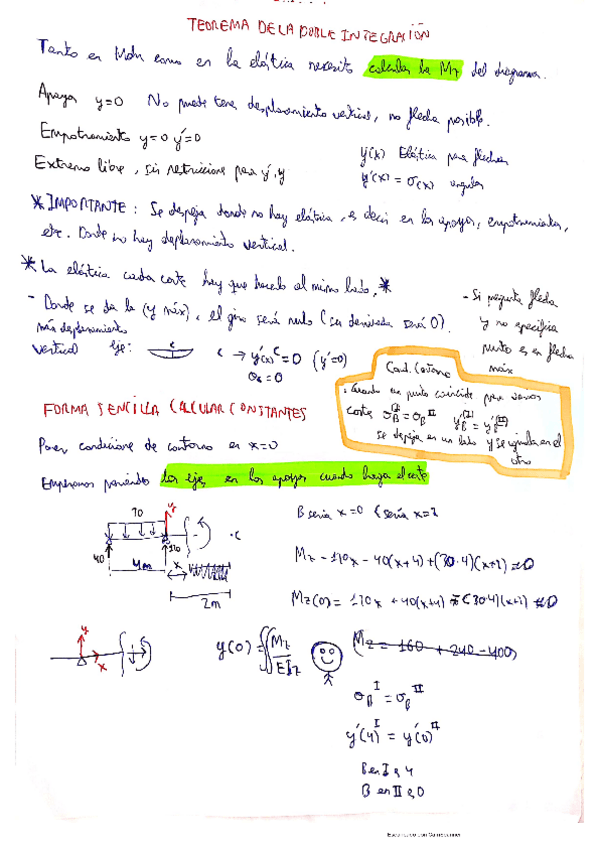 TEOREMA DE LA DOBLE INTEGRACIÓN
Tanto en Mohr como en la elástica necesito calcular la Mz del diagrama.
Apoyo y=0 No puede tener desplazamiento vertical, no flecha posible.
Empotramiento y=0 y'=0
y(x) Elástica para flechas
Extremo libre, sin restricciones para y', y
y'(x) = σ(x)
* IMPORTANTE: Se despeja donde no hay elástica, es decir en los apoyos, empotramientos,
etc. Donde no hay desplazamiento vertical.
* La elástica cada corte hay que hacerlo al mismo lado. *
- Donde se da la (y máx), el giro será nulo (su derivada será 0).
más desplazamiento
vertical
eje:
c
c → y'(x)c = 0 (y'=0)
θc = 0
- Si pregunta flecha
y no especifica
punto es en flecha
máx
Cond. Contorno
. Cuando un punto coincide para varios
cortes σB(I) = σB II y'B(I) = y'B(II)
se despeja en un lado y se iguala en el
otro
FORMA SENCILLA CALCULAR CONSTANTES
Poner condiciones de contorno en x=0
Empezamos poniendo los ejes en los apoyos cuando haga el corte
B sería x=0 C sería x=2
40
4m
x
2m
· C
Mz - 110x - 40(x+4) + (30·4)(x+2) = 0
Mz(0) = 110x + 40(x+4)
y
x
y(0) = ∬ Mz/EIz
Mz = 160 + 240 - 400
σB I = σB II
y'(4) I = y'(0) II
B en I es 4
B en II es 0